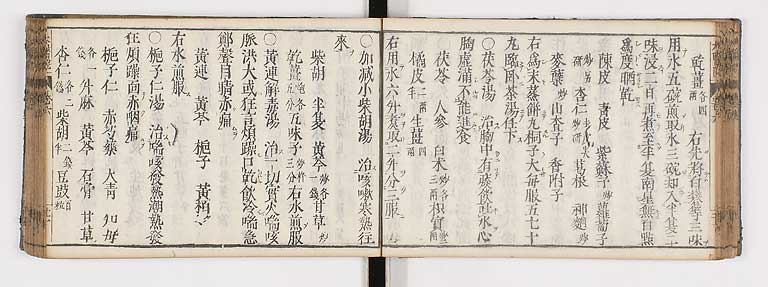 乾薑各四 右先將白礬等三味
用水五碗煎取水三碗却入半夏二
味浸二日再煮至半夏南星無白點
為度晒乾
陳皮 青皮 紫蘇子炒 蘿蔔子
杏仁 葛根 神麯炒
麥蘗炒 山査子 香附子
右為末蒸餅丸桐子大每服五七十
丸臨臥茶湯任下
〇茯苓湯 治胸中有痰飲吐水心
胸虛滿不能進食
茯苓 人參 白朮三兩 枳實
橘皮一兩半 生薑四兩
右用水六升煮取二升分三服
〇加減小柴胡湯 治咳嗽寒熱往
來
柴胡 半夏 黃芩各一錢 甘草
乾薑 五味子 右水煎服
〇黃連解毒湯 治一切實火喘咳
脈洪大或狂言煩躁口乾飲冷喘急
鄭聲目睛赤痛
黃連 黃芩 梔子 黃栢
右水煎服
〇梔子仁湯 治喘咳發熱潮熱發
狂煩躁面赤咽痛
梔子仁 赤芍藥 大青 知母
各一 升麻 黃芩 石膏 甘草
杏仁各二 柴胡 豆豉百粒